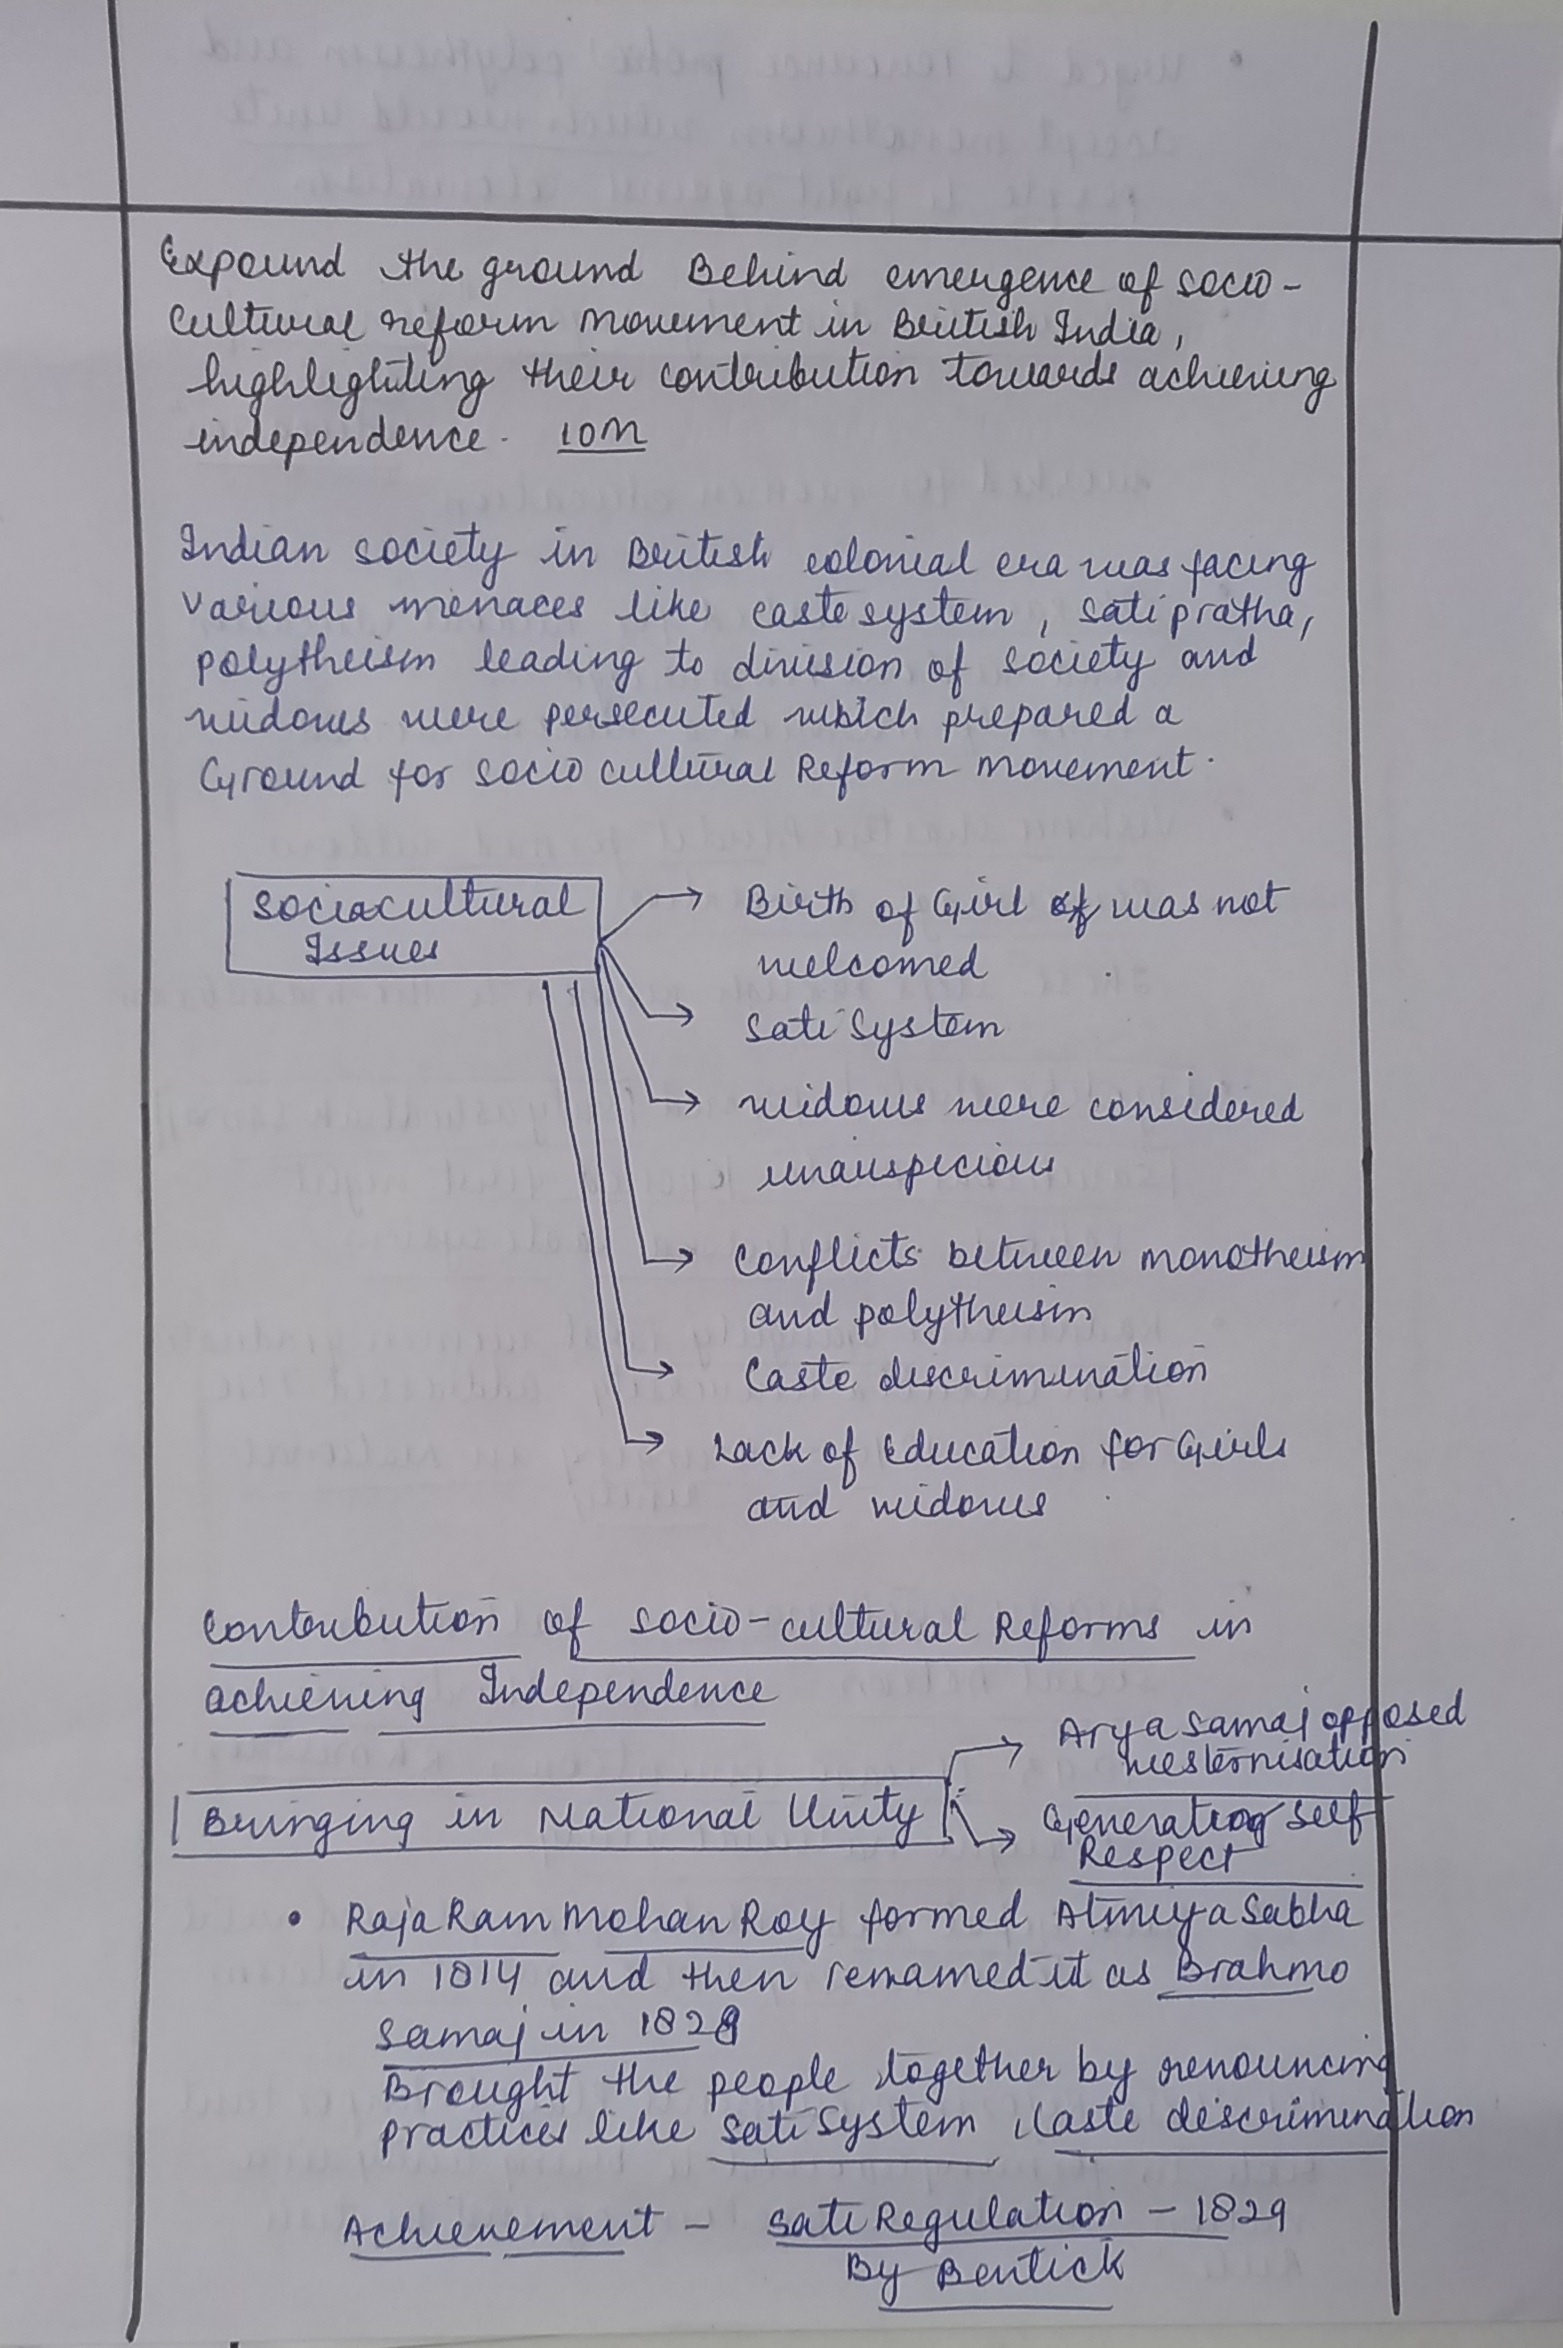 Expound the ground Behind emergence of socio-
Cultural reform movement in British India,
highlighting their contribution towards achieving
independence. 10M
Indian society in British colonial era was facing
various menaces like caste system, sati pratha,
polytheism leading to division of society and
widows were persecuted which prepared a
Ground for socio cultural Reform movement.
Sociocultural
Issues
Birth of Girl was not
welcomed
Sati System
widows were considered
unauspicious
Conflicts between monotheism
and polytheism
Caste discrimination
Lack of Education for Girls
and widows
Contribution of socio-cultural Reforms in
achieving Independence
Bringing in National Unity
Arya Samaj opposed
westernisation
Generating Self
Respect
• Raja Ram Mohan Roy formed Atmiya Sabha
in 1814 and then renamed it as Brahmo
Samaj in
Brought the people together by renouncing
practices like Sati System, Caste discrimination
Achievement - Sati Regulation - 1829
By Bentick